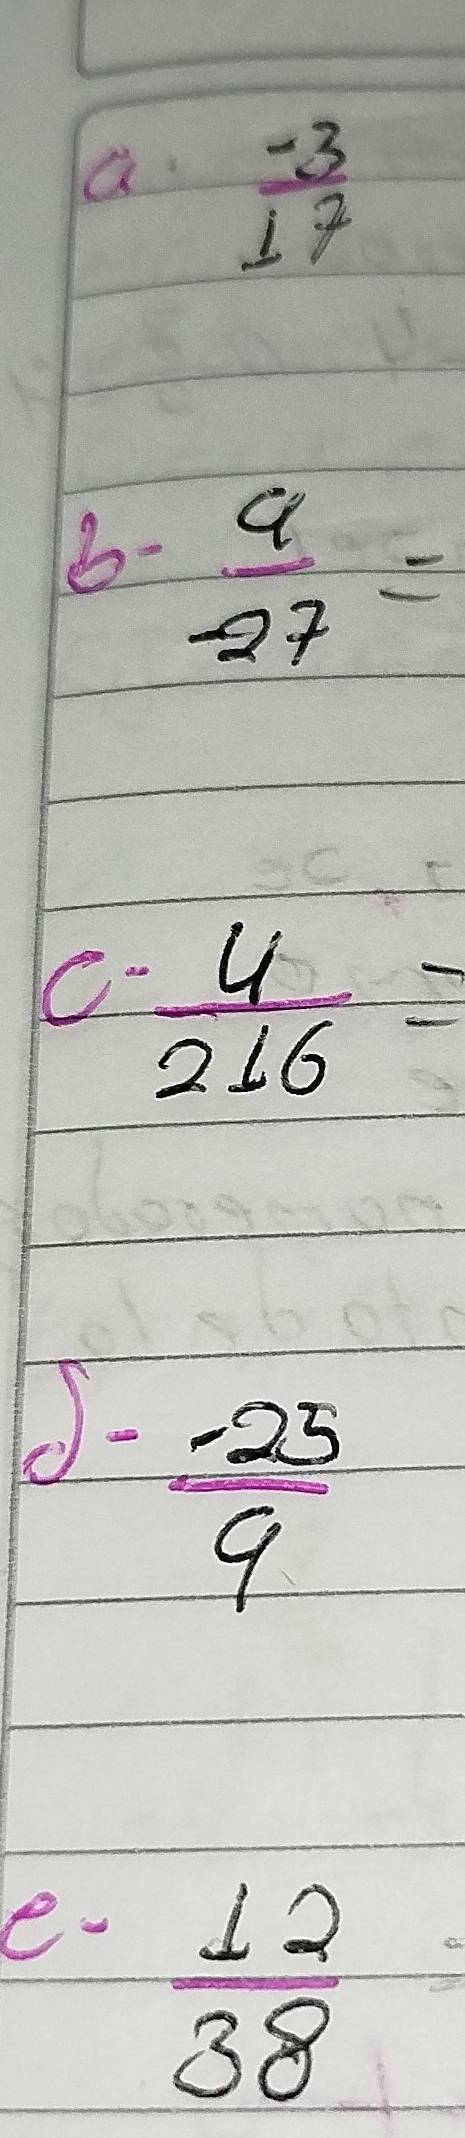 a. -3
17
b- 9
-27 =
c- 4
216 =
d- -25
9
e- 12
38